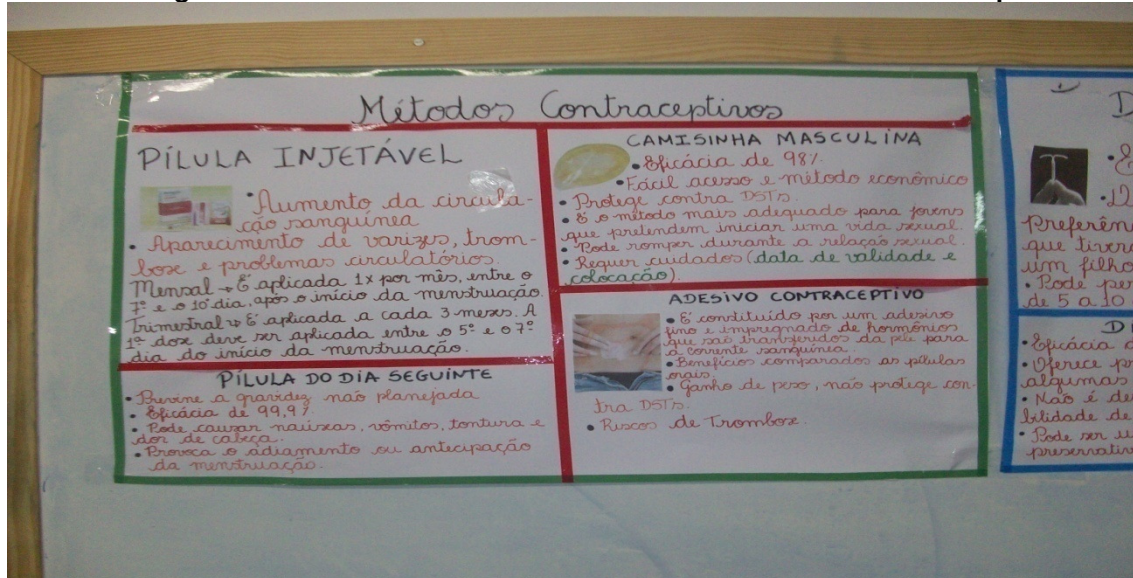 Métodos Contraceptivos
PÍLULA INJETÁVEL
• Aumento da circula-
ção sanguínea
• Aparecimento de varizes, trom-
bose e problemas circulatórios.
Mensal → É aplicada 1x por mês, entre o
7º e o 10º dia, após o início da menstruação.
Trimestral → É aplicada a cada 3 meses. A
1ª dose deve ser aplicada entre o 5º e o 7º
dia do início da menstruação.
PÍLULA DO DIA SEGUINTE
• Previne a gravidez não planejada
• Eficácia de 99,9%
• Pode causar náuseas, vômitos, tontura e
dor de cabeça.
• Provoca o adiamento ou antecipação
da menstruação.
CAMISINHA MASCULINA
• Eficácia de 98%
• Fácil acesso e método econômico
• Protege contra DSTs
• É o método mais adequado para jovens
que pretendem iniciar uma vida sexual.
• Pode romper durante a relação sexual.
• Requer cuidados (data de validade e
colocação).
ADESIVO CONTRACEPTIVO
• É constituído por um adesivo
fino e impregnado de hormônios
que são transferidos da pele para
a corrente sanguínea.
• Benefícios comparados as pílulas
orais.
• Ganho de peso, não protege con-
tra DSTs.
• Riscos de Trombose.
D
Preferên
que tiver
um filho
• Pode per
de 5 a 10
D
• Eficácia
• Oferece pr
algumas
• Não é de
bilidade de
• Pode ser u
preservativ